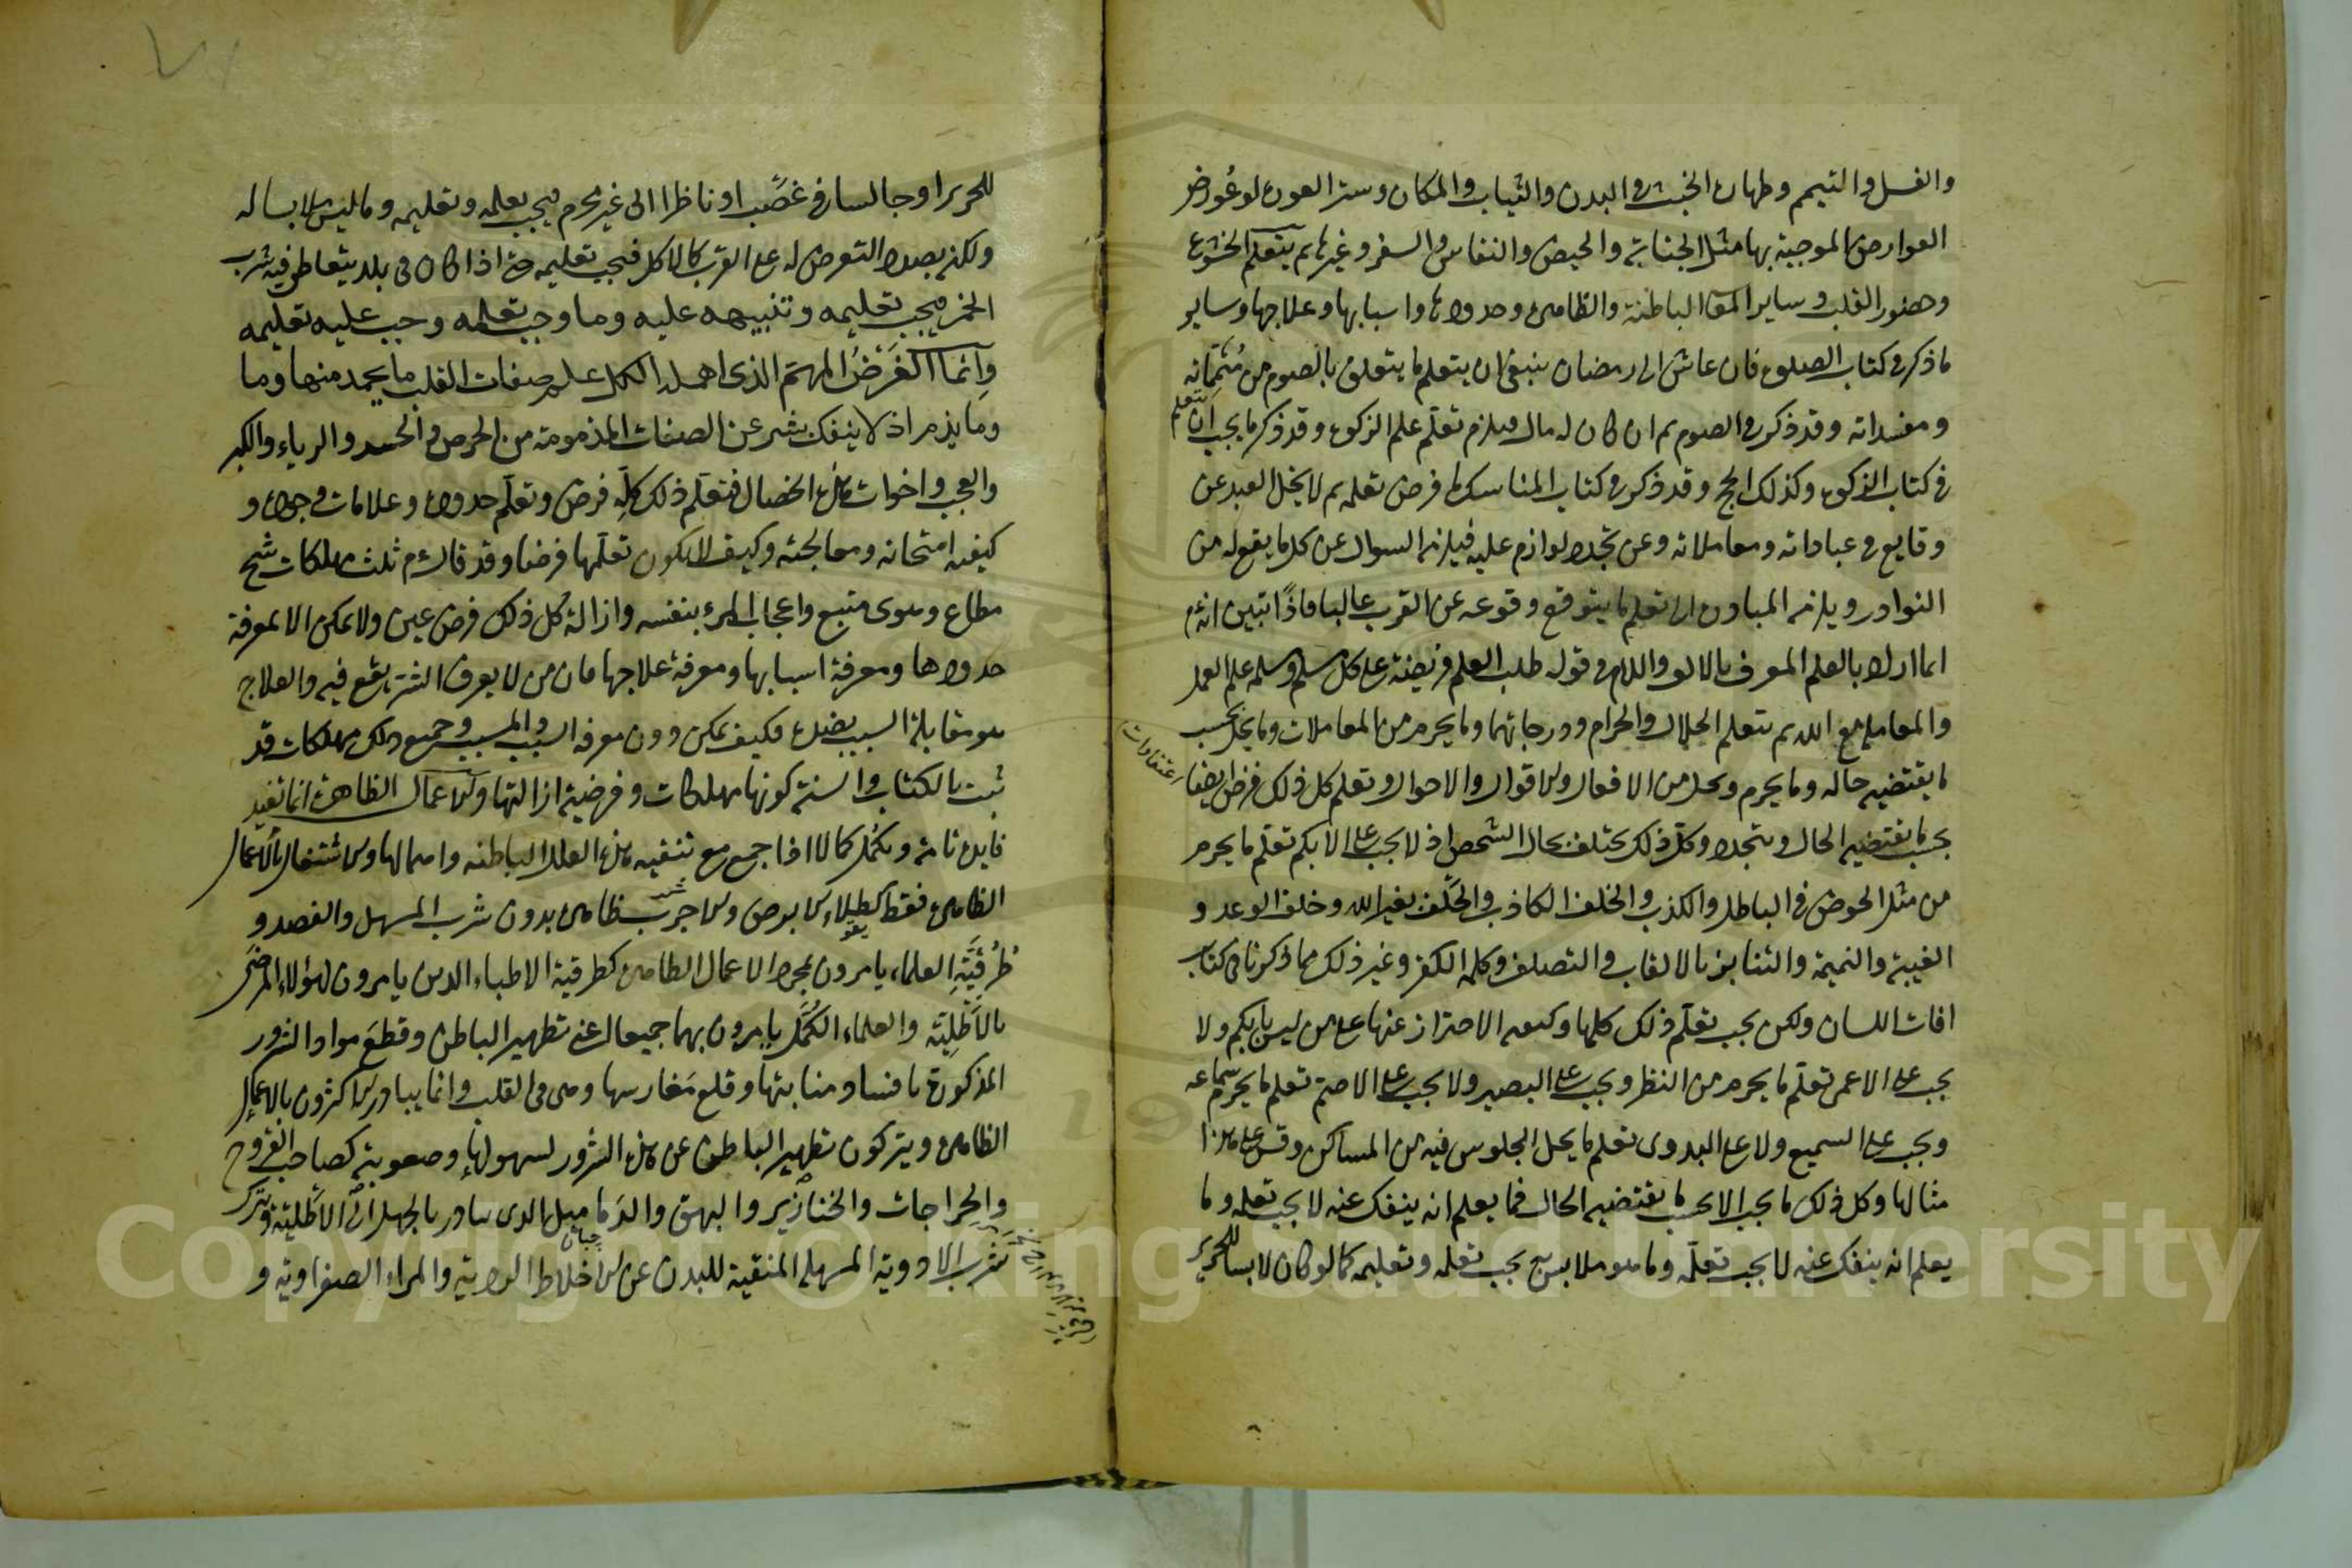 والغسل والتيمم وطهارة الخبث في البدن والثياب والمكان وستر العورة لو عورض
العوارض الموجبة بها مثل الجنابة والحيض والنفاس والسفر وغيرها ثم يتعلم الخشوع
وحضور القلب وساير المعا الباطنة والظاهرة وحدودها واسبابها وعلاجها وساير
ما ذكر في كتاب الصلوة فان عاش الى رمضان ينبغي ان يتعلم ما يتعلق بالصوم من متمماته
ومفسداته وقد ذكر في الصوم ثم ان كان له مال فيلزم تعلم علم الزكوة وقد ذكر ما يجب ان يتعلم
في كتاب الزكوة وكذلك الحج وقد ذكر في كتاب المناسك ما فرض تعلمه ثم لا يخل العبد عن
وقايع في عباداته ومعاملاته وعن تجدد لوازم عليه فيلزمه السوال عن كل ما يقع له من
النوادر ويلزمه المبادرة الى تعلم ما يتوقع وقوعه عن القرب غالبا فاذا تبين انه
انما اراد بالعلم المعرف بالالف واللام في قوله طلب العلم فريضة على كل مسلم ومسلمة علم العمل
والمعاملة مع الله ثم يتعلم الحلال والحرام ودرجاتهما وما يحرم من المعاملات وما يحل بحسب
ما يقتضيه حاله وما يحرم ويحل من الافعال والاقوال والاحوال وتعلم كل ذلك فرض ايضا
اعتقادات
بحسب ما يقتضيه الحال ويتجدد وكل ذلك يختلف بحال الشخص اذ لا يجب على الابكم تعلم ما يحرم
من مثل الخوض في الباطل والكذب والخلف الكاذب والحلف بغير الله وخلف الوعد و
الغيبة والنميمة والتنابز بالالقاب والتصلف وكلمة الكفر وغير ذلك مما ذكرنا في كتاب
افات اللسان ولكن يجب تعلم ذلك كلها وكيفية الاحتراز عنها على من ليس بابكم ولا
يجب على الاعمى تعلم ما يحرم من النظر ويجب على البصير ولا يجب على الاصم تعلم ما يحرم سماعه
ويجب على السميع ولا على البدوى تعلم ما يحل الجلوس فيه من المساكن وقس على هذا
مثالها وكل ذلك ما يجب الا بحسب ما يقتضيه الحال فما يعلم انه ينفك عنه لا يجب تعلمه وما
يعلم انه ينفك عنه لا يجب تعلمه وما هو ملابس به يجب تعلمه وتعليمه كما لو كان لابسا للحرير
للحرير او جالسا في غصب او ناظرا الى غير محرم فيجب تعلمه وتعليمه وما ليس ملابسا له
ولكنه بصدد التعرض له على القرب كالاكل فيجب تعليمه حتى اذا كان في بلد يتعاطى فيه شرب
الخمر فيجب تعليمه وتنبيهه عليه وما وجب تعلمه وجب عليه تعليمه
وانما الغرض المهتم الذي اهمله الكل علم صفات القلب ما يحمد منها وما
وما يذم اذ لا ينفك بشر عن الصفات المذمومة من الحرص والحسد والرياء والكبر
والعجب واخوات هذه الخصال فتعلم ذلك كله فرض وتعلم حدوده وعلامات وجوده و
كيفية امتحانه ومعالجته وكيف لا يكون تعلمها فرضا وقد قال م ثلث مهلكات شح
مطاع وهوى متبع واعجاب المرء بنفسه وازالة كل ذلك فرض عين ولا يمكن الا بمعرفة
حدودها ومعرفة اسبابها ومعرفة علاجها فان من لا يعرف الشر يقع فيه والعلاج
هو مقابلة السبب بضده فكيف يمكن دون معرفة السبب والمسبب وجميع ذلك مهلكات قد
ثبت بالكتاب والسنة كونها مهلكات وفرضية ازالتها والاعمال الظاهرة انما تفيد
فايدة تامة وتكمل كمالا اذا جمع مع تنقيه هذه العلل الباطنه واهمالها والاشتغال بالاعمال
الظاهرة فقط كطلاء الابرص والاجرب ظاهره بدون شرب المسهل والفصد و
العلماء يامرون بمجرد الاعمال الظاهرة كطرقية الاطباء الذين يامرون لهؤلاء المرضى
بالاطلية والعلماء الكمل يامرون بهما جميعا اعني تطهير الباطن وقطع مواد الشرور
المذكورة بافساد منابتها وقلع مغارسها وهي في القلب وانما يبادر الاكثرون بالاعمال
الظاهرة ويتركون تطهير الباطن عن هذه الشرور لسهولتها وصعوبته كصاحب القروح
والجراجات والخنازير والبهق والدماميل الذي يبادر بالجهل الى الاطلية ويترك
شرب الادوية المسهلة المنقية للبدن عن الاخلاط الردية والمراد الصفراوية و
Copyright © King Saud University